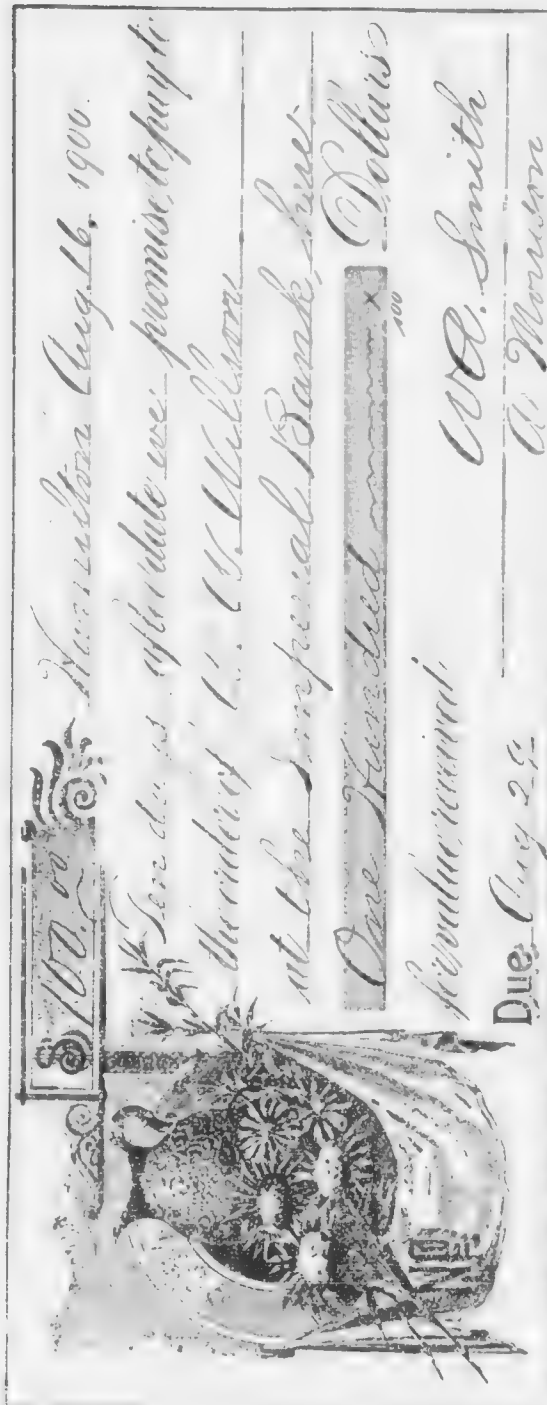 $100.00 Hamilton Aug. 16, 1900.
Ten days after date we promise to pay to
the order of C. V. Willson
at the Imperial Bank, here
One Hundred × 100 Dollars
for value received.
W A. Smith
Due Aug 29 A. Morrison
No.